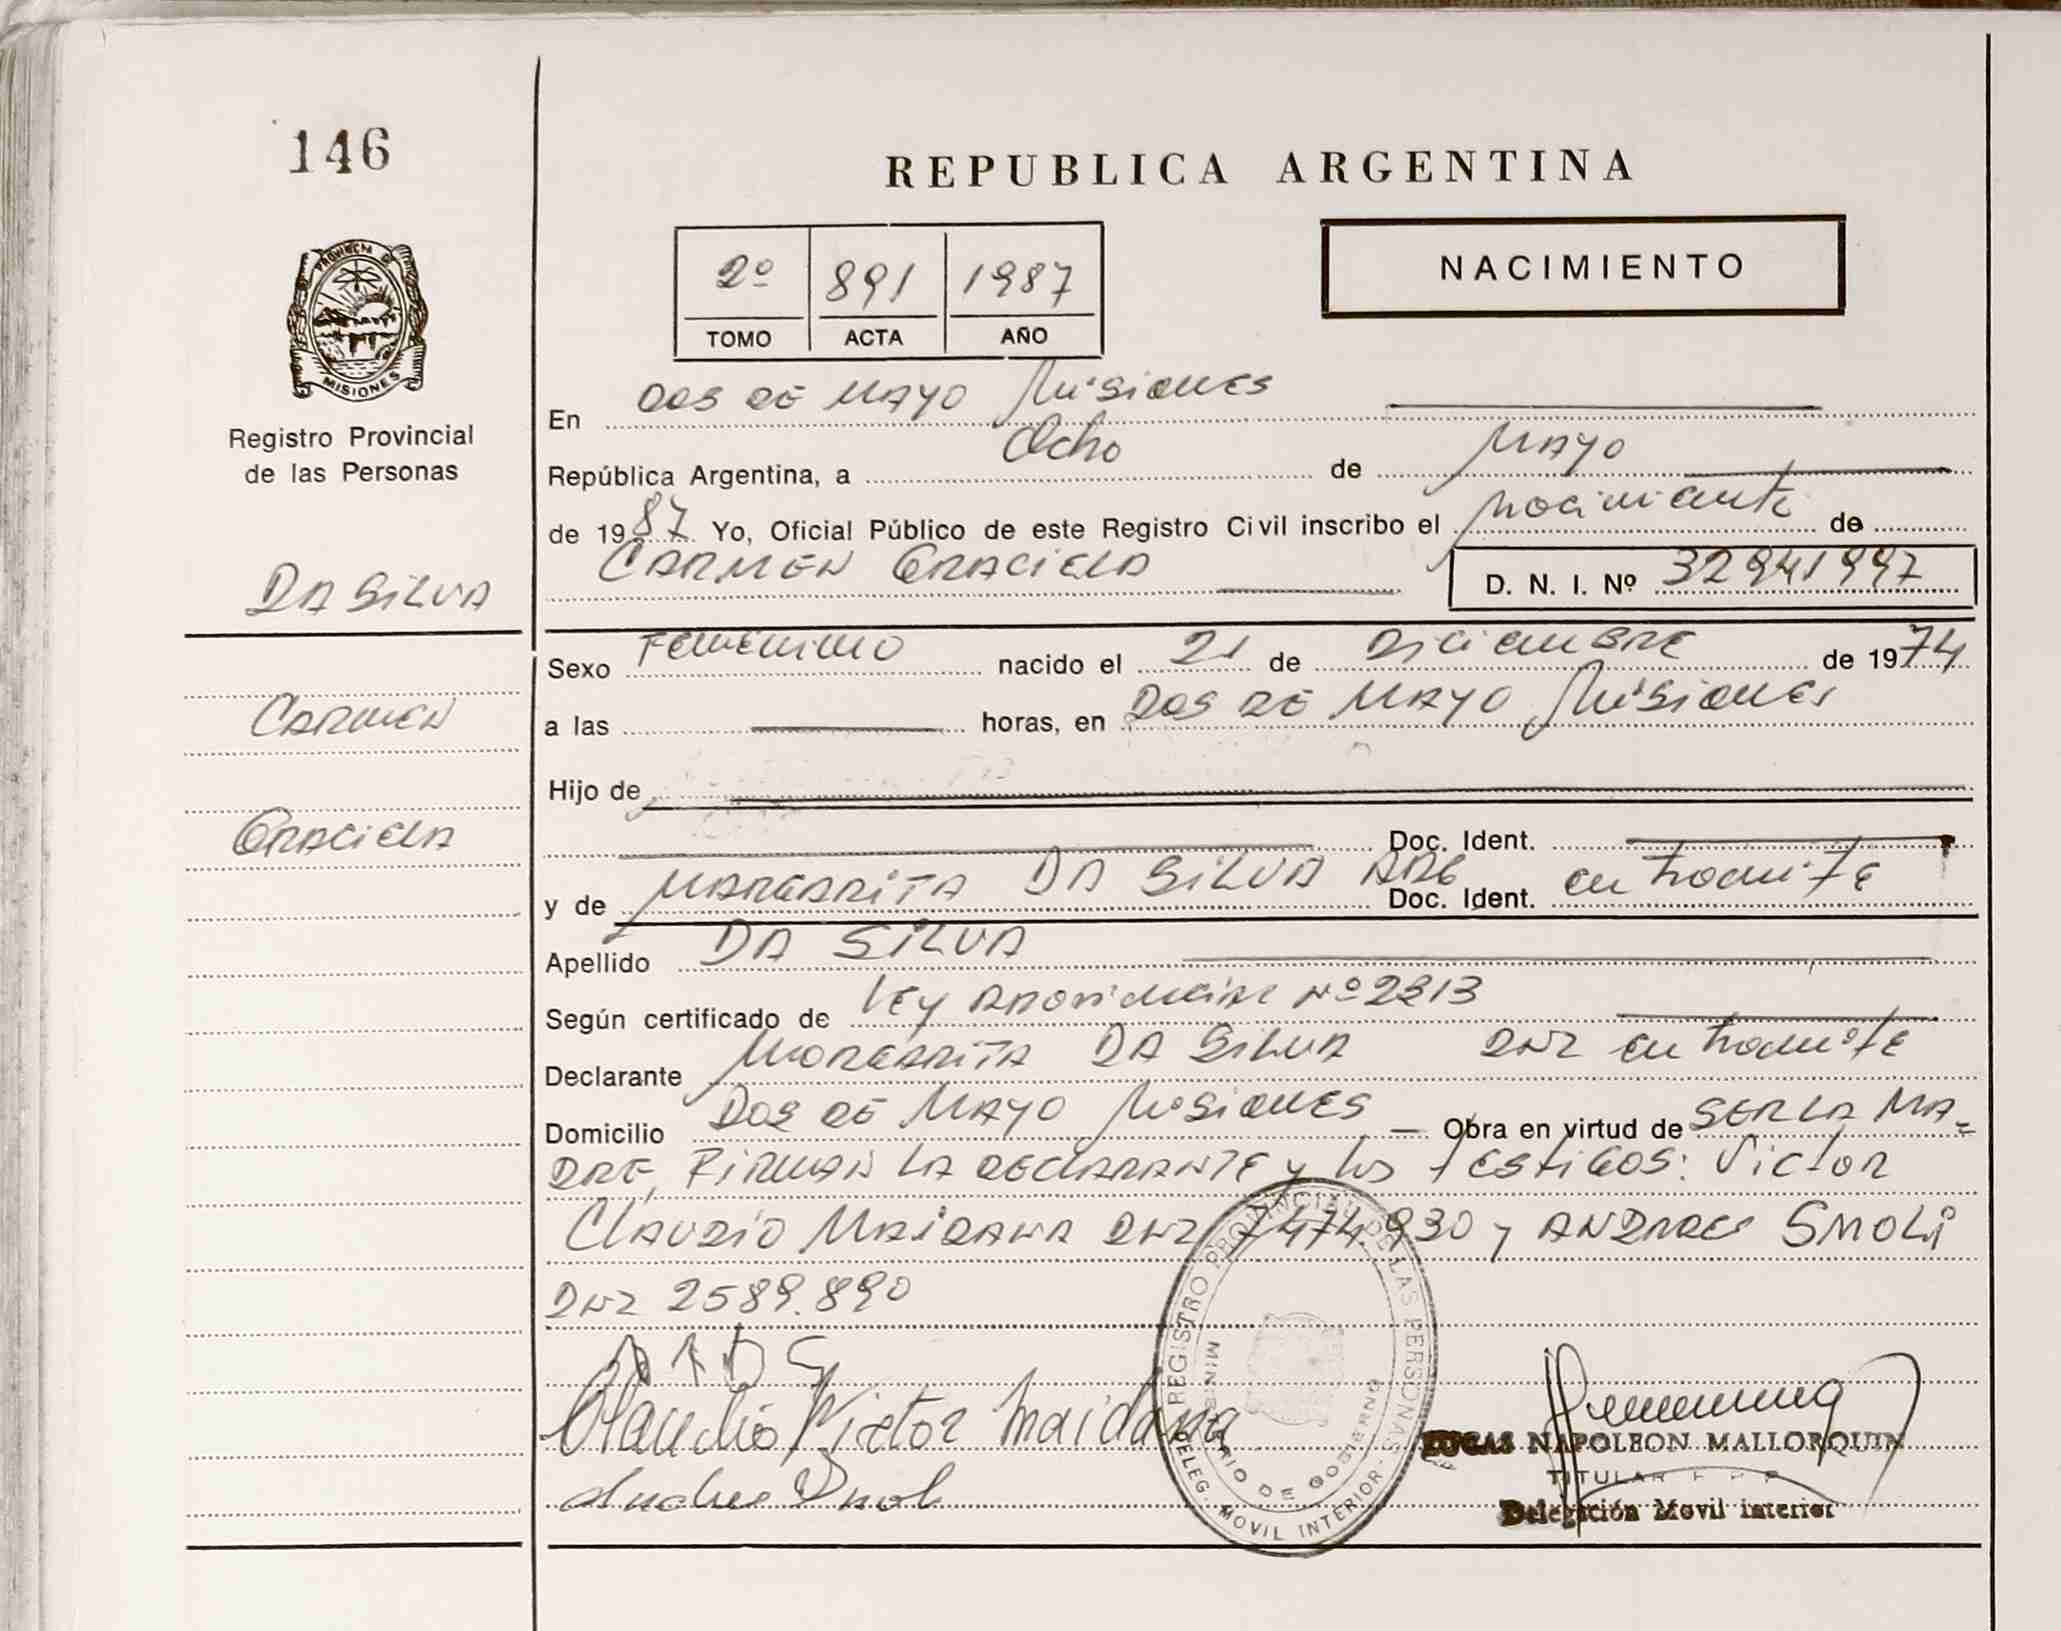 146
REPUBLICA ARGENTINA
PROVINCIA DE MISIONES
Registro Provincial
de las Personas
2º 891 1987
TOMO ACTA AÑO
NACIMIENTO
En DOS DE MAYO Misiones
República Argentina, a Ocho de MAYO
de 1987 Yo, Oficial Público de este Registro Civil inscribo el nacimiento de
CARMEN GRACIELA D. N. I. Nº 32941997
DA SILVA
CARMEN
GRACIELA
Sexo Femenino nacido el 21 de Diciembre de 1974
a las horas, en DOS DE MAYO Misiones
Hijo de
Doc. Ident.
y de MARGARITA DA SILVA ARG Doc. Ident. en tramite
Apellido DA SILVA
Según certificado de Ley Nº 2213
Declarante MARGARITA DA SILVA DNI en tramite
Domicilio DOS DE MAYO Misiones — Obra en virtud de SER LA MA=
DRE, FIRMAN LA DECLARANTE y los TESTIGOS: Victor
CLAUDIO MAIDANA DNI 7474.930 y ANDRES SMOLI
DNI 2589.890
Claudio Victor maidana
REGISTRO PROVINCIAL DE LAS PERSONAS
MINISTERIO DE GOBIERNO
DELEG. MOVIL INTERIOR
LUCAS NAPOLEON MALLORQUIN
TITULAR
Delegación Movil interior